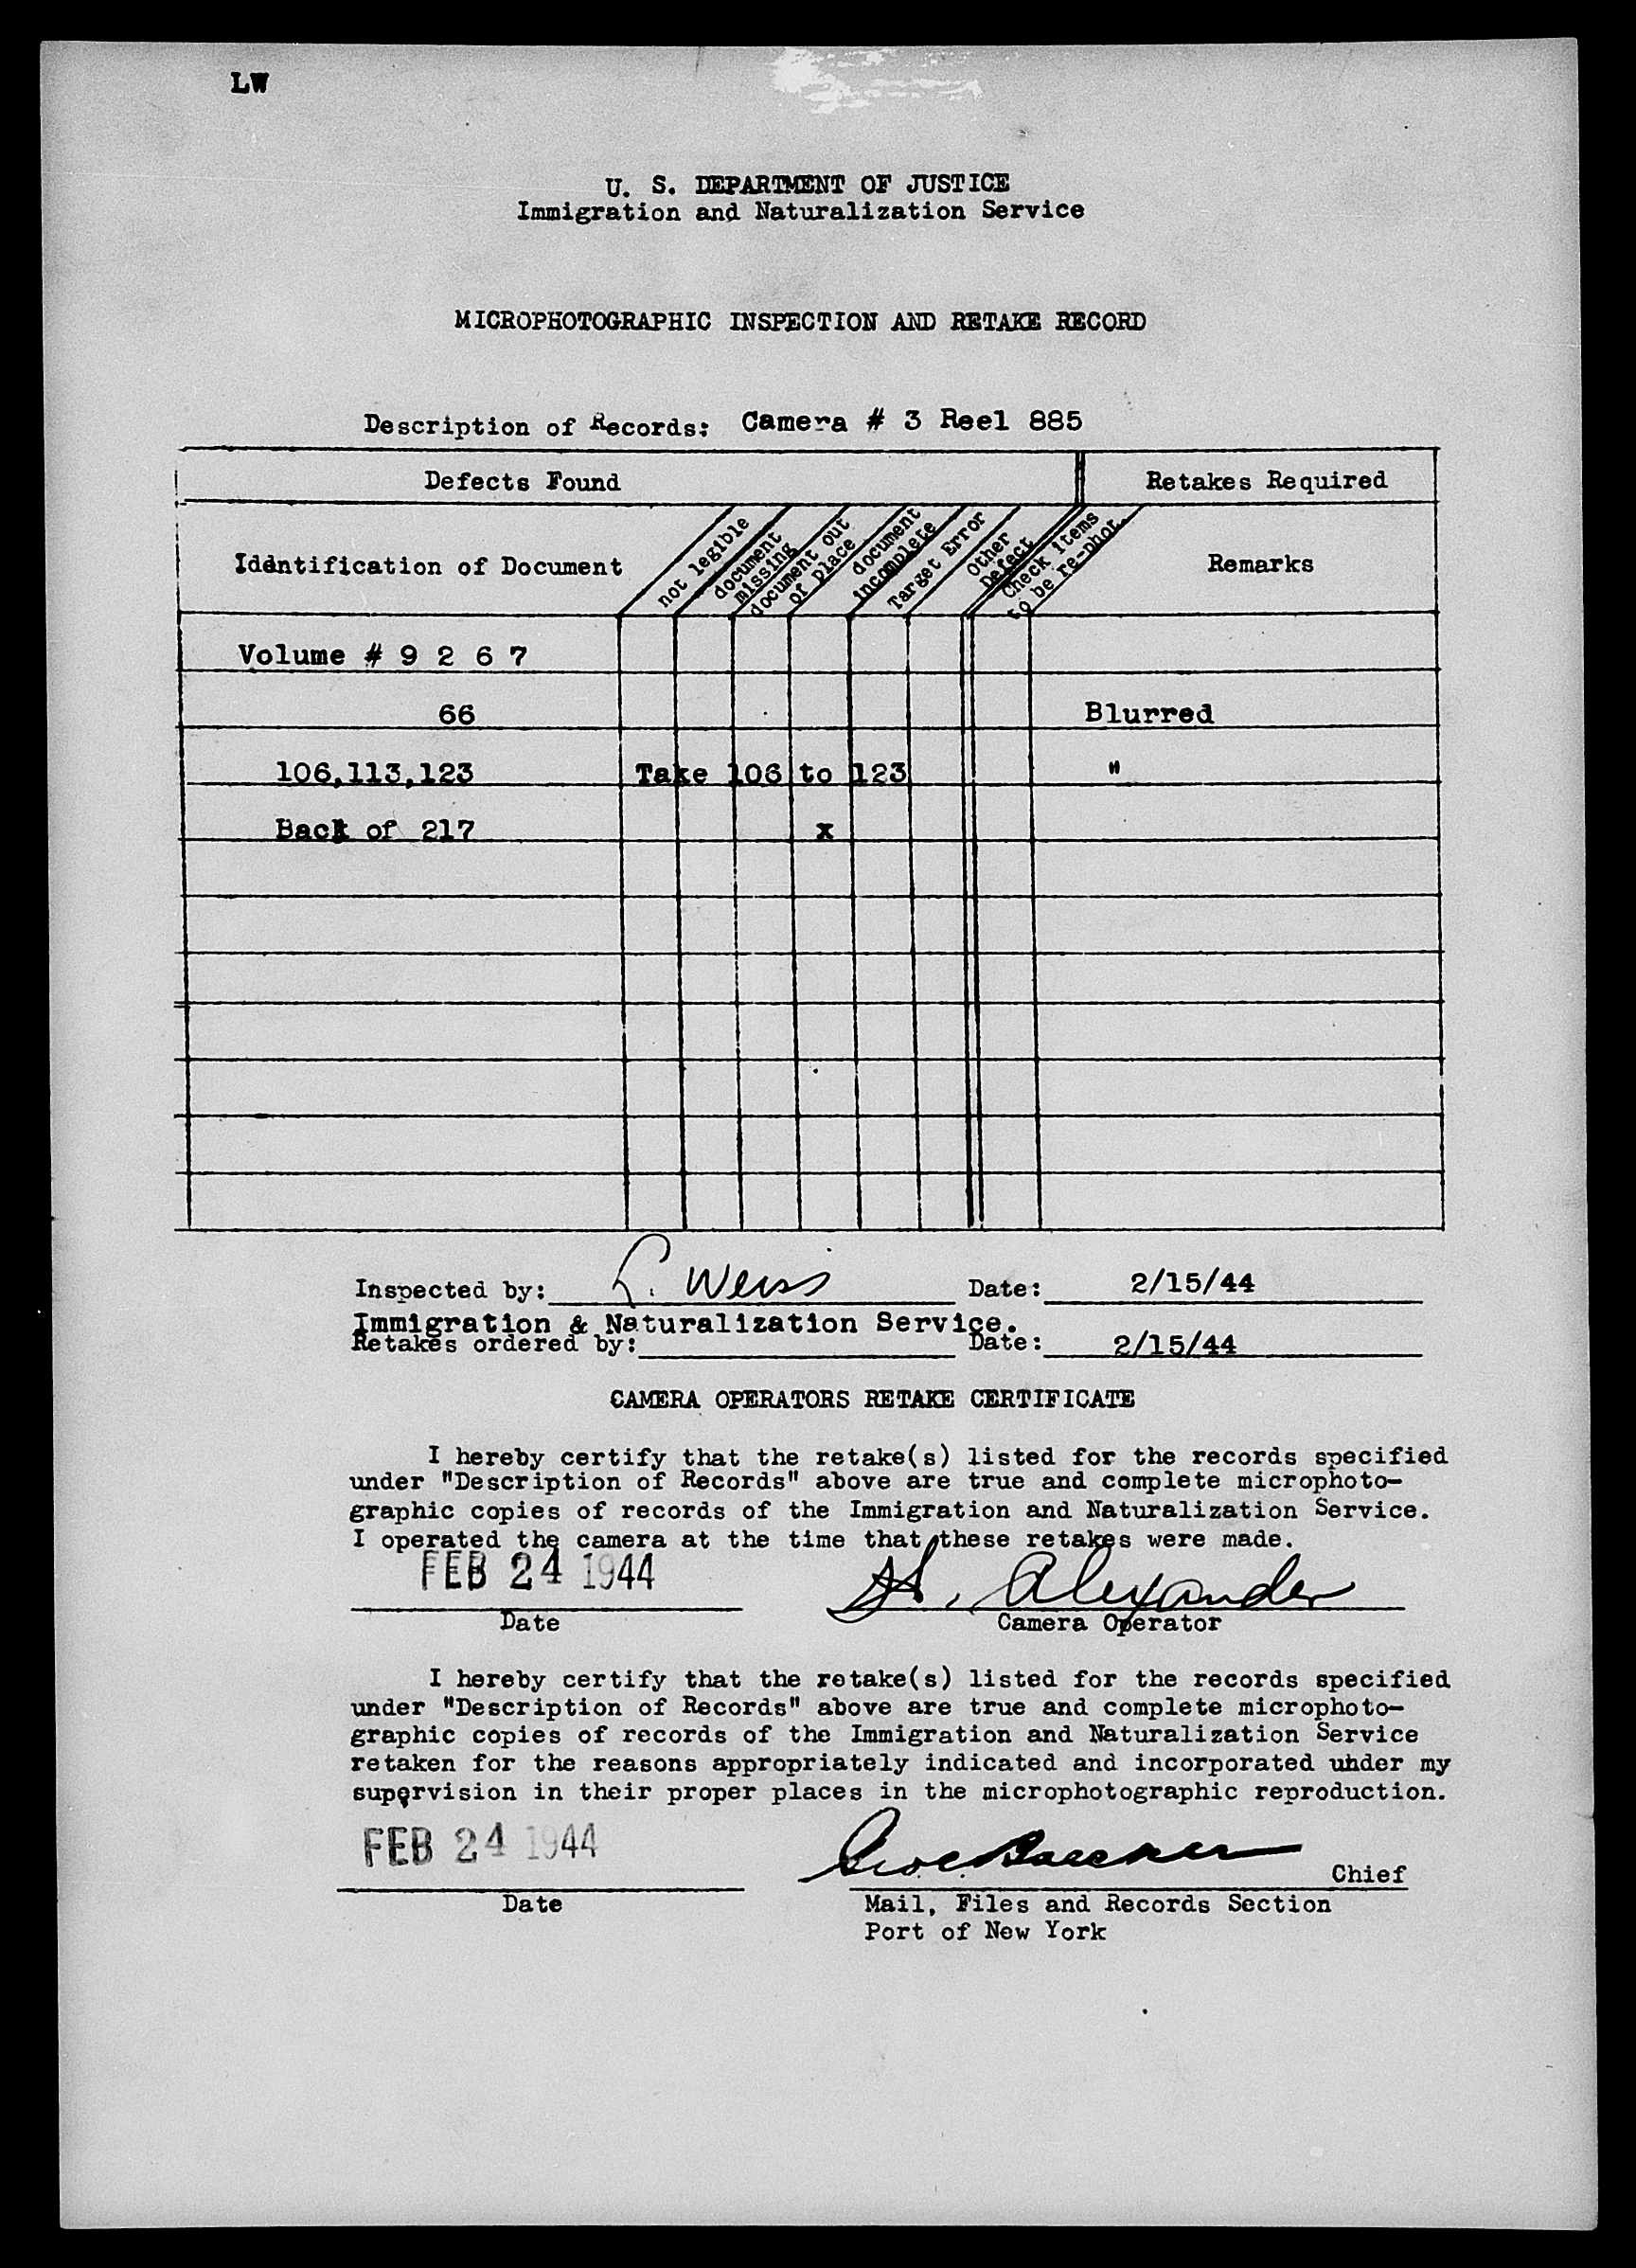 LW
U. S. DEPARTMENT OF JUSTICE
Immigration and Naturalization Service
MICROPHOTOGRAPHIC INSPECTION AND RETAKE RECORD
Description of Records: Camera # 3 Reel 885
Defects Found Retakes Required
Identification of Document
not legible
document missing
document out of place
document incomplete
Target Error
Other Defect
Check items to be re-phot.
Remarks
Volume # 9 2 6 7
66 Blurred
106,113,123 Take 106 to 123 "
Back of 217 x
Inspected by: L. Weiss Date: 2/15/44
Immigration & Naturalization Service.
Retakes ordered by: Date: 2/15/44
CAMERA OPERATORS RETAKE CERTIFICATE
I hereby certify that the retake(s) listed for the records specified
under "Description of Records" above are true and complete microphoto-
graphic copies of records of the Immigration and Naturalization Service.
I operated the camera at the time that these retakes were made.
FEB 24 1944 H. Alexander
Date Camera Operator
I hereby certify that the retake(s) listed for the records specified
under "Description of Records" above are true and complete microphoto-
graphic copies of records of the Immigration and Naturalization Service
retaken for the reasons appropriately indicated and incorporated under my
supervision in their proper places in the microphotographic reproduction.
FEB 24 1944 Chief
Date Mail, Files and Records Section
Port of New York